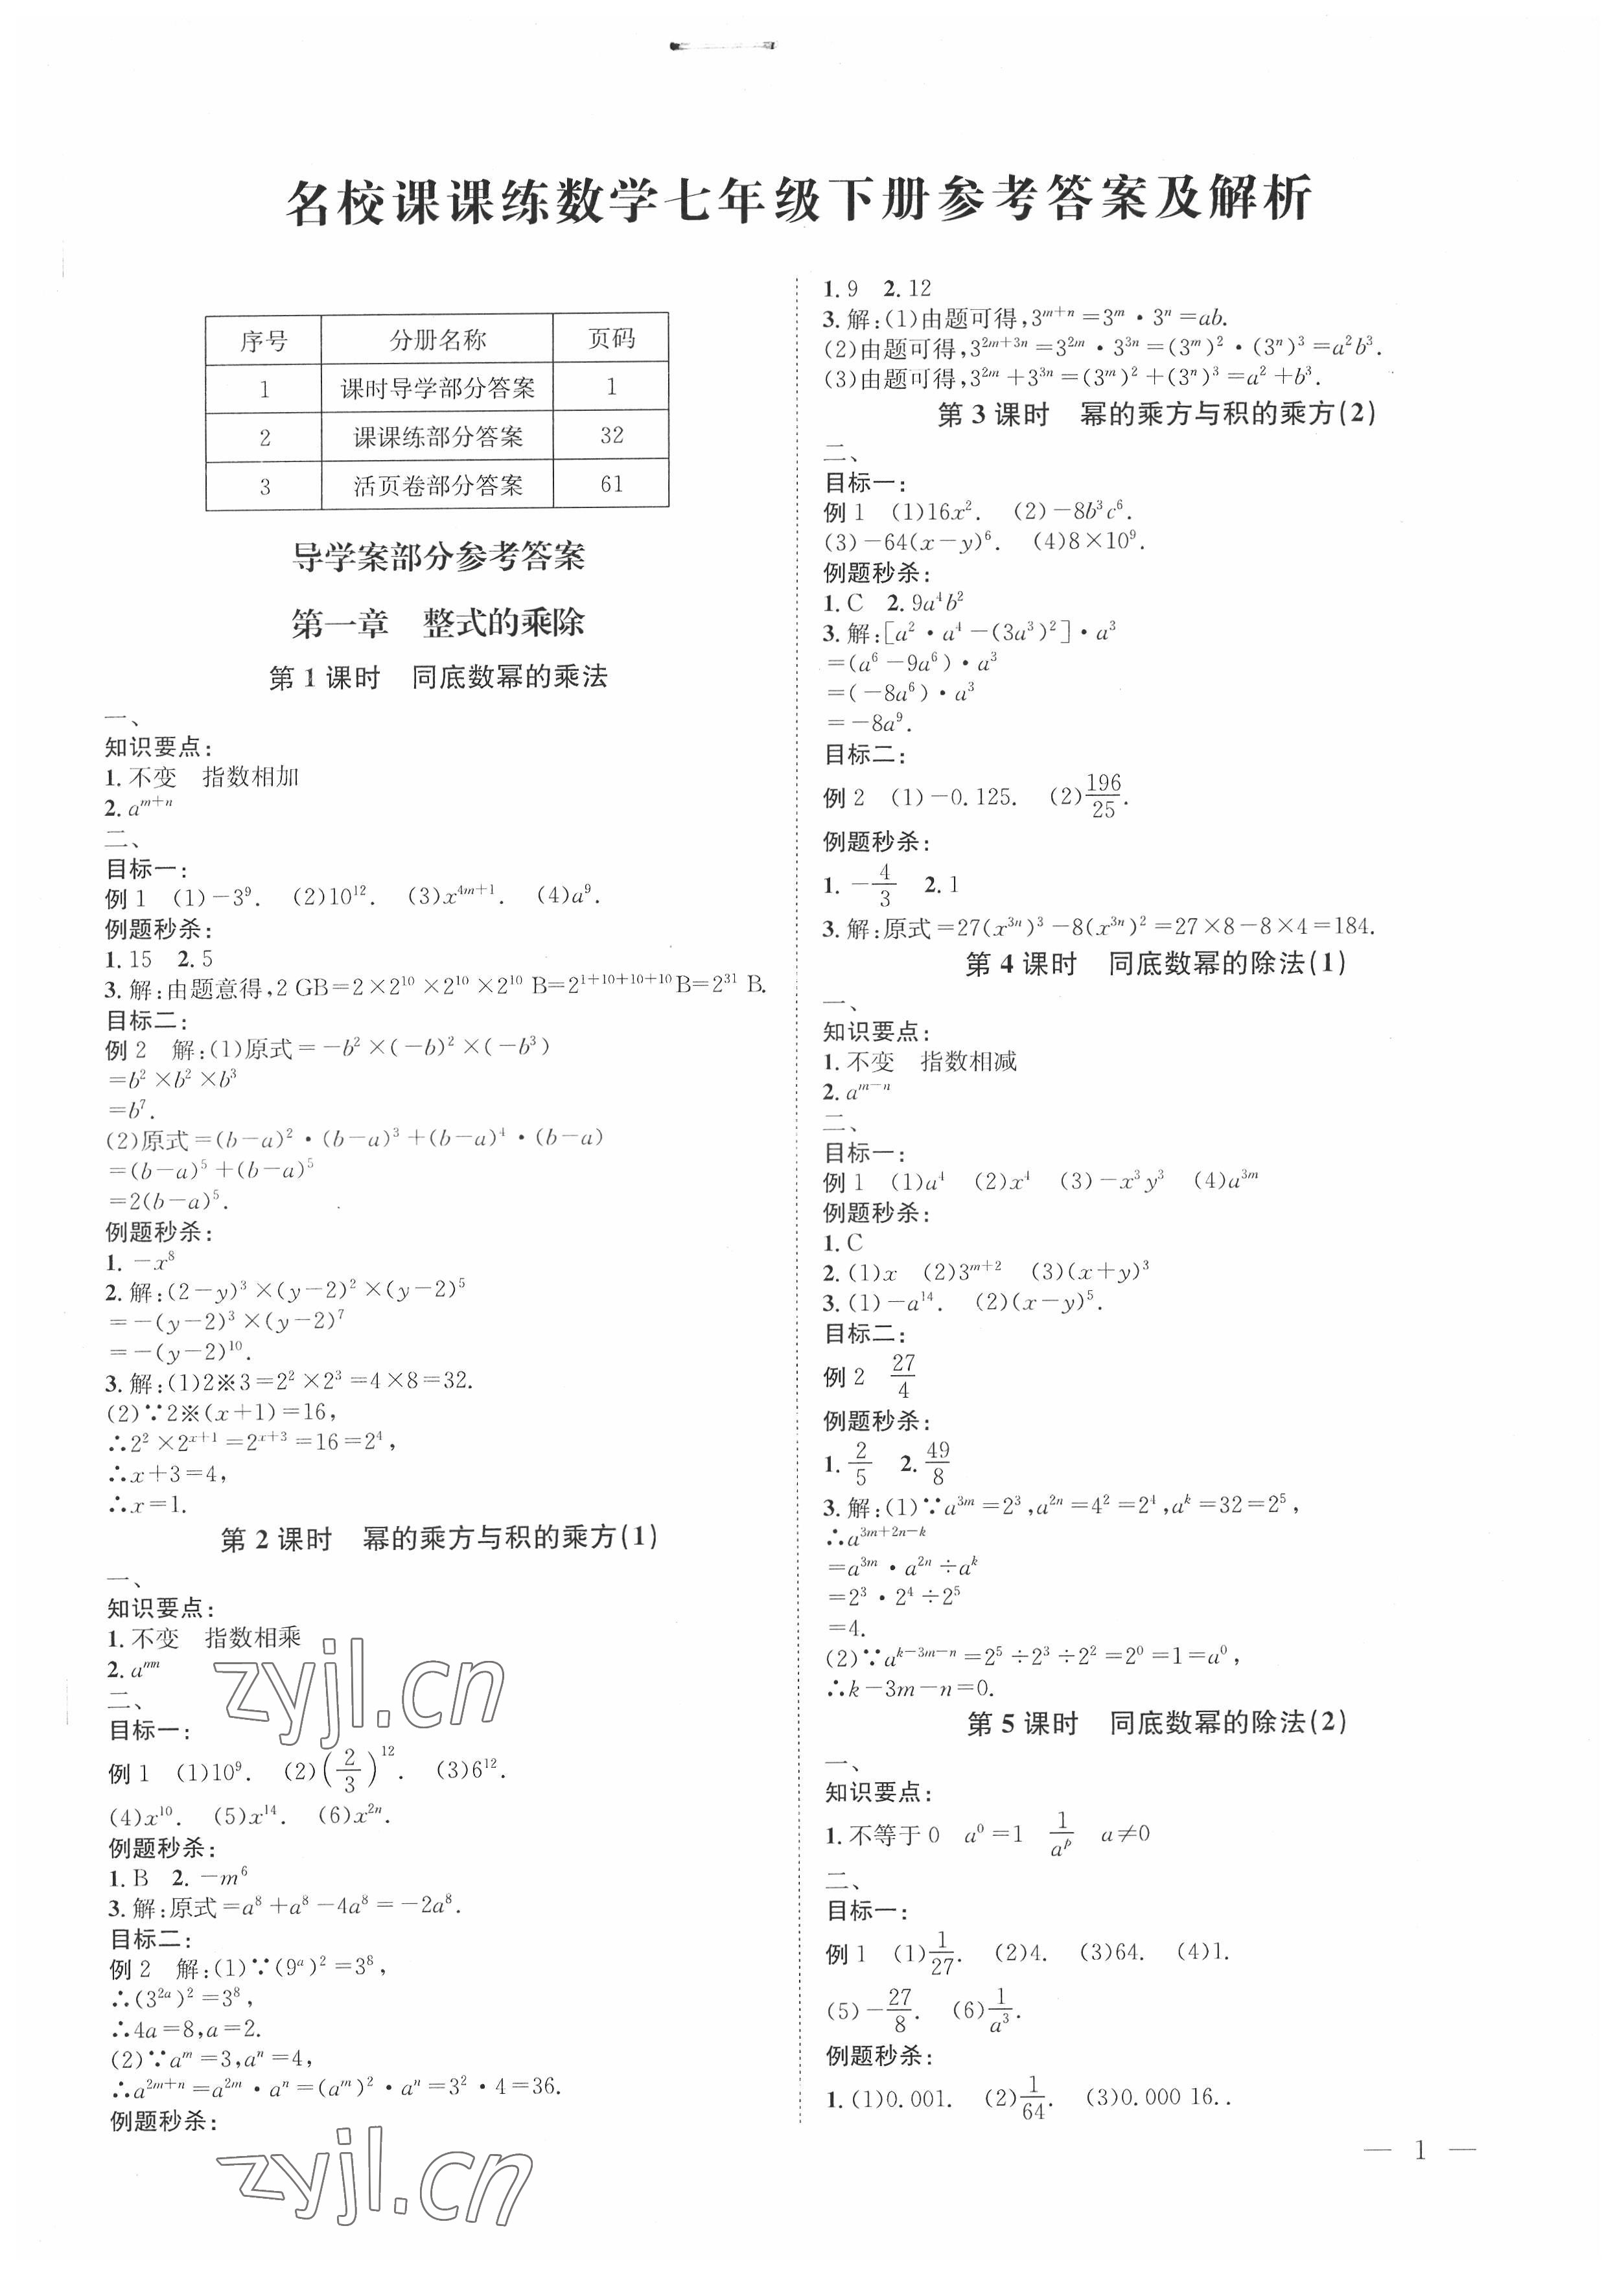 名校课课练数学七年级下册参考答案及解析
序号 分册名称 页码
1 课时导学部分答案 1
2 课课练部分答案 32
3 活页卷部分答案 61
导学案部分参考答案
第一章 整式的乘除
第 1 课时 同底数幂的乘法
一、
知识要点:
1. 不变 指数相加
2. a^{m+n}
二、
目标一:
例 1 (1)-3^9. (2)10^{12}. (3)x^{4m+1}. (4)a^9.
例题秒杀:
1. 15 2. 5
3. 解:由题意得,2 GB=2×2^{10}×2^{10}×2^{10} B=2^{1+10+10+10}B=2^{31} B.
目标二:
例 2 解:(1)原式=-b^2×(-b)^2×(-b^3)
=b^2×b^2×b^3
=b^7.
(2)原式=(b-a)^2·(b-a)^3+(b-a)^4·(b-a)
=(b-a)^5+(b-a)^5
=2(b-a)^5.
例题秒杀:
1. -x^8
2. 解:(2-y)^3×(y-2)^2×(y-2)^5
=-(y-2)^3×(y-2)^7
=-(y-2)^{10}.
3. 解:(1)2※3=2^2×2^3=4×8=32.
(2)∵2※(x+1)=16,
∴2^2×2^{x+1}=2^{x+3}=16=2^4,
∴x+3=4,
∴x=1.
第 2 课时 幂的乘方与积的乘方(1)
一、
知识要点:
1. 不变 指数相乘
2. a^{mn}
二、
目标一:
例 1 (1)10^9. (2)(2/3)^{12}. (3)6^{12}.
(4)x^{10}. (5)x^{14}. (6)x^{2n}.
例题秒杀:
1. B 2. -m^6
3. 解:原式=a^8+a^8-4a^8=-2a^8.
目标二:
例 2 解:(1)∵(9^a)^2=3^8,
∴(3^{2a})^2=3^8,
∴4a=8,a=2.
(2)∵a^m=3,a^n=4,
∴a^{2m+n}=a^{2m}·a^n=(a^m)^2·a^n=3^2·4=36.
例题秒杀:
1. 9 2. 12
3. 解:(1)由题可得,3^{m+n}=3^m·3^n=ab.
(2)由题可得,3^{2m+3n}=3^{2m}·3^{3n}=(3^m)^2·(3^n)^3=a^2b^3.
(3)由题可得,3^{2m}+3^{3n}=(3^m)^2+(3^n)^3=a^2+b^3.
第 3 课时 幂的乘方与积的乘方(2)
二、
目标一:
例 1 (1)16x^2. (2)-8b^3c^6.
(3)-64(x-y)^6. (4)8×10^9.
例题秒杀:
1. C 2. 9a^4b^2
3. 解:[a^2·a^4-(3a^3)^2]·a^3
=(a^6-9a^6)·a^3
=(-8a^6)·a^3
=-8a^9.
目标二:
例 2 (1)-0.125. (2)196/25.
例题秒杀:
1. -4/3 2. 1
3. 解:原式=27(x^{3n})^3-8(x^{3n})^2=27×8-8×4=184.
第 4 课时 同底数幂的除法(1)
一、
知识要点:
1. 不变 指数相减
2. a^{m-n}
二、
目标一:
例 1 (1)a^4 (2)x^4 (3)-x^3y^3 (4)a^{3m}
例题秒杀:
1. C
2. (1)x (2)3^{m+2} (3)(x+y)^3
3. (1)-a^{14}. (2)(x-y)^5.
目标二:
例 2 27/4
例题秒杀:
1. 2/5 2. 49/8
3. 解:(1)∵a^{3m}=2^3,a^{2n}=4^2=2^4,a^k=32=2^5,
∴a^{3m+2n-k}
=a^{3m}·a^{2n}÷a^k
=2^3·2^4÷2^5
=4.
(2)∵a^{k-3m-n}=2^5÷2^3÷2^2=2^0=1=a^0,
∴k-3m-n=0.
第 5 课时 同底数幂的除法(2)
一、
知识要点:
1. 不等于 0 a^0=1 1/a^p a≠0
二、
目标一:
例 1 (1)1/27. (2)4. (3)64. (4)1.
(5)-27/8. (6)1/a^3.
例题秒杀:
1. (1)0.001. (2)1/64. (3)0.000 16..
— 1 —
zyjl.cn
zyjl.cn